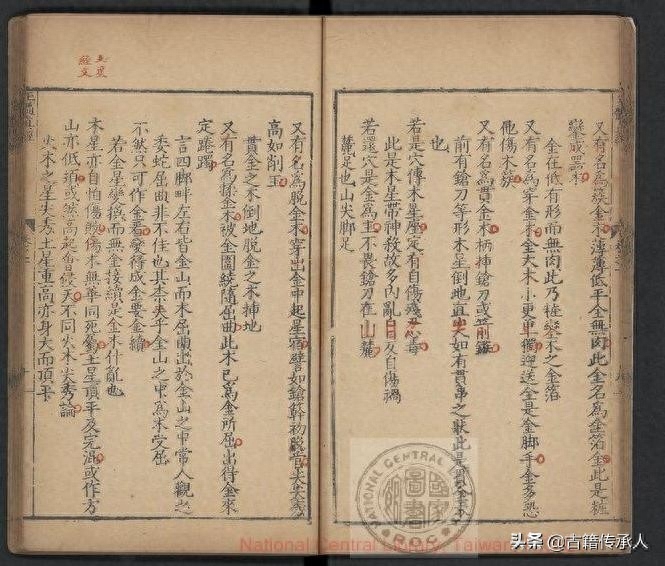 又有名為簇金木薄薄低平全無肉此金名為金箔金此是粧
變成器木
金在低有形而無肉此乃粧變木之金箔
又有名為穿金木金大木小更單獨迎送全是金脚手金多恐
他傷木簇
又有名為貫金木柄挿鎗刀或
前有鎗刀等形木星倒地直如有貫之狀此是貫金木
也
若是穴傳木星座定有自傷殘忍毒
此是木星帶神殺故多內亂自及自傷禍
若還穴是金為主不畏鎗刀在山麓
麓足也山尖脚足
又有名為脫金木穿出金中起星宿譬如鎗幹初脫尖尖
高如削玉
貫金之木倒地脫金之木揷地
又有名為金木被金圍繞隨屈曲此木已為金所屈出得金來
定踡躅
言四脚畔左右皆金山而木屈蘭出於金山之中常人觀之
委蛇屈曲非不佳也其柰夹乎金山之中為木受屈
不然只可作金看變得成金要金續
若金星變換而無金接續是金木什亂也
木星亦自怕傷殘傷木無華同死土星頂平及完混或作方
山亦低或然高起會侵天不同火木尖秀論
火木之星尖秀土星重高亦身大而頂平
卷之二
土星
經文
NATIONAL CENTRAL
國家圖書館
R.O.C
National Central Library, Taiwan
头条 @古籍传承人